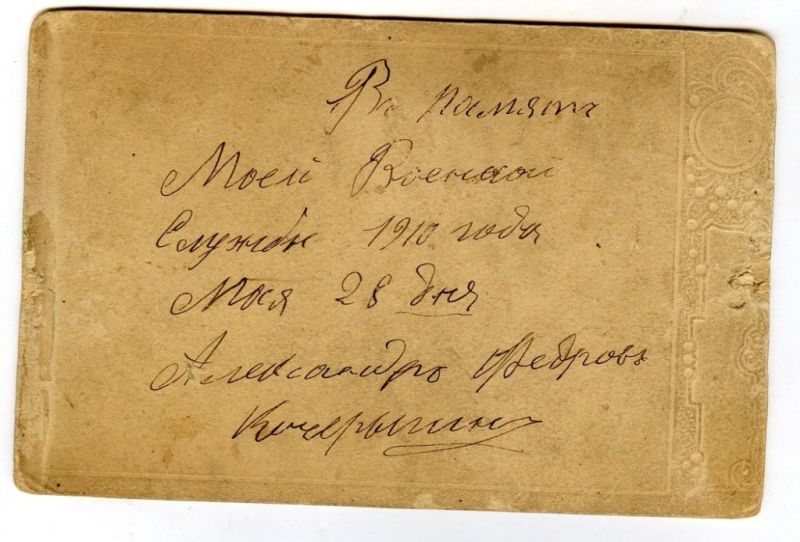 Въ память
Моей Военной
Службы 1910 года
Мая 28 дня
Александръ Федровъ
Кочерыгин